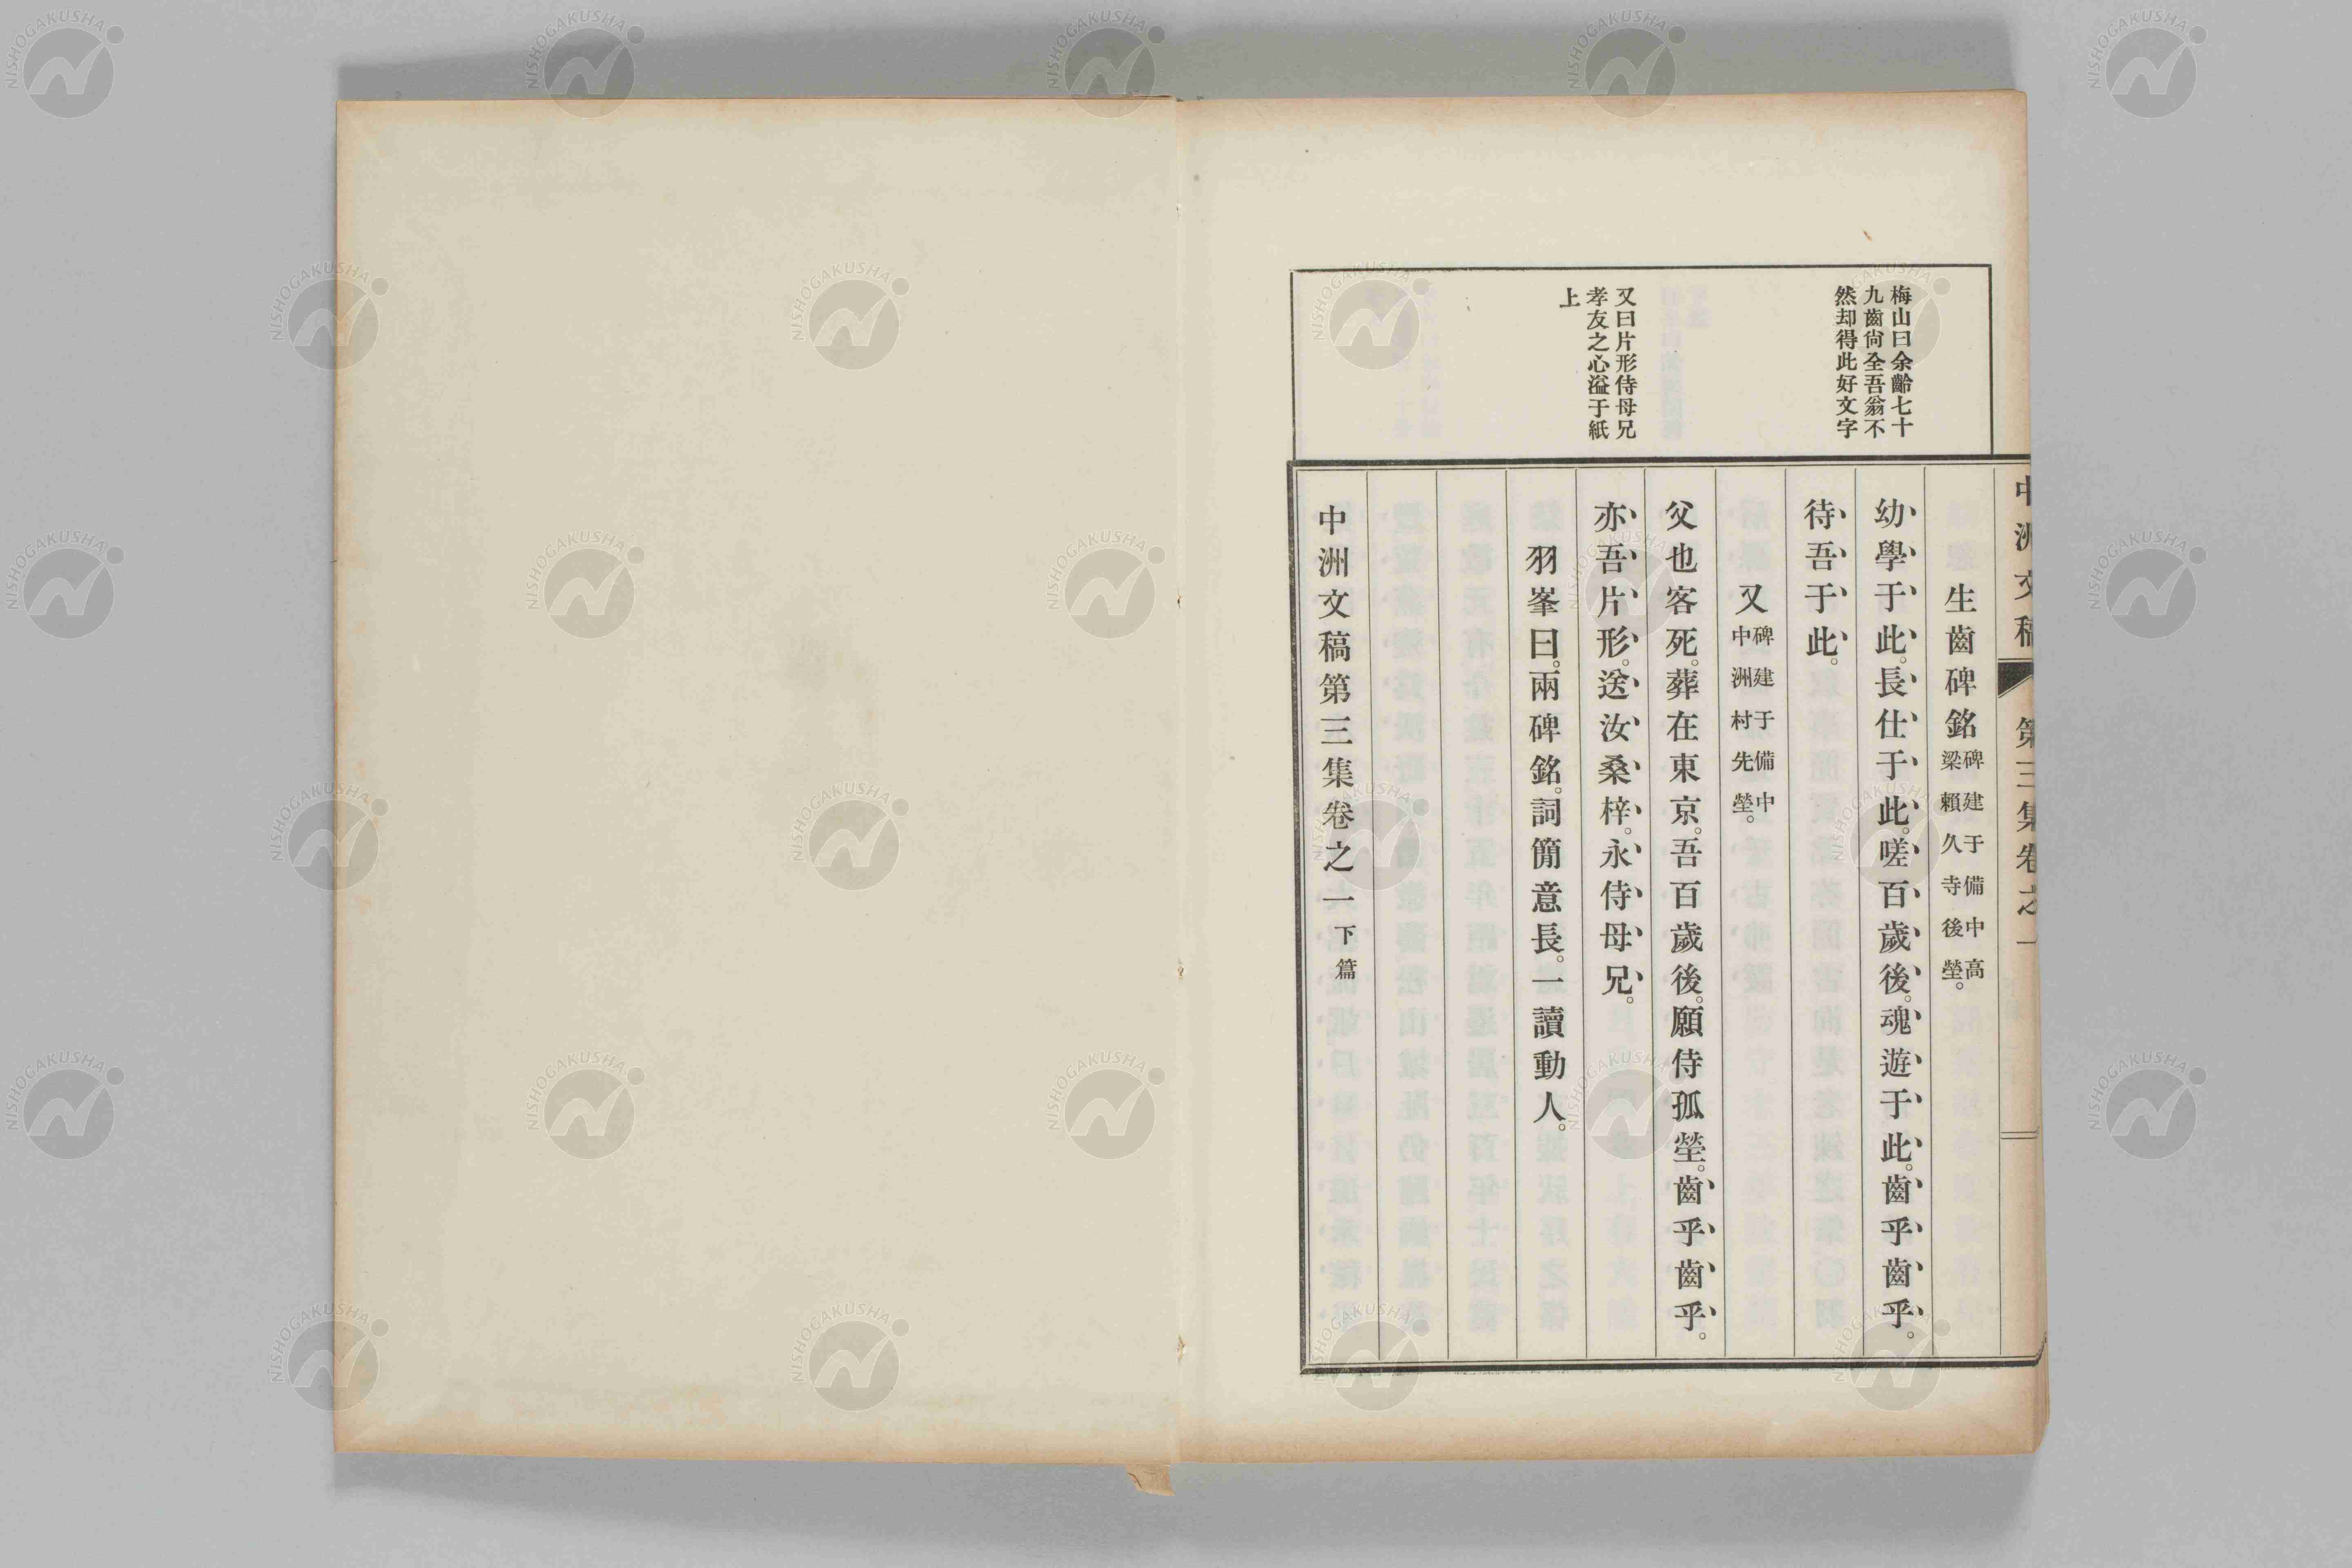 中洲文稿 第三集卷之一
梅山曰余齡七十
九齒尙全吾翁不
然却得此好文字
又曰片形侍母兄
孝友之心溢于紙
上
生齒碑銘 碑建于備中高梁賴久寺後塋。
幼學于此。長仕于此。嗟百歲後。魂遊于此。齒乎齒乎。
待吾于此。
又 碑建于備中中洲村先塋。
父也客死。葬在東京。吾百歲後。願侍孤塋。齒乎齒乎。
亦吾片形。送汝桑梓。永侍母兄。
羽峯曰。兩碑銘。詞簡意長。一讀動人。
中洲文稿第三集卷之一 下篇
NISHOGAKUSHA